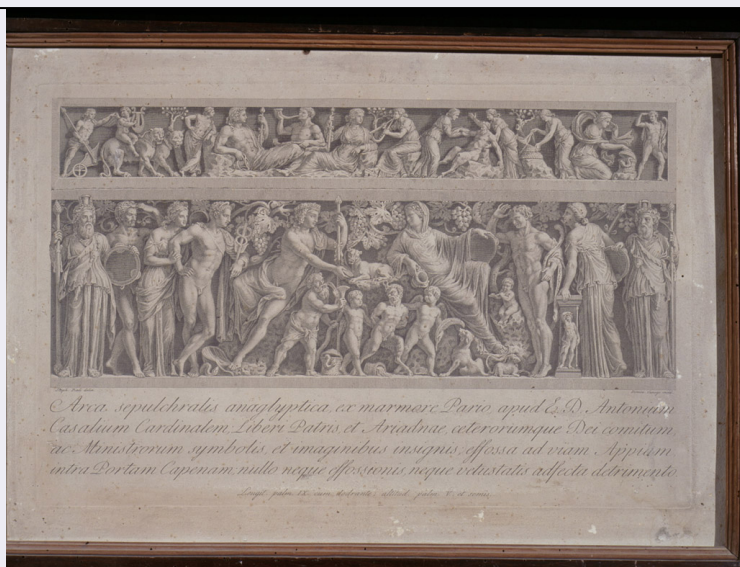 Arca sepulchralis anaglyptica, ex marmore Pario, apud E. D. Antonium
Casalium Cardinalem, Liberi Patris, et Ariadnae, ceterorumque Dei comitum,
ac Ministrorum symbolis, et imaginibus insignis, effossa ad viam Appiam
intra Portam Capenam nullo neque effossionis, neque vetustatis adfecta detrimento
Longit. palm. IX. cum dodrante: altitud. palm. V. et semis.